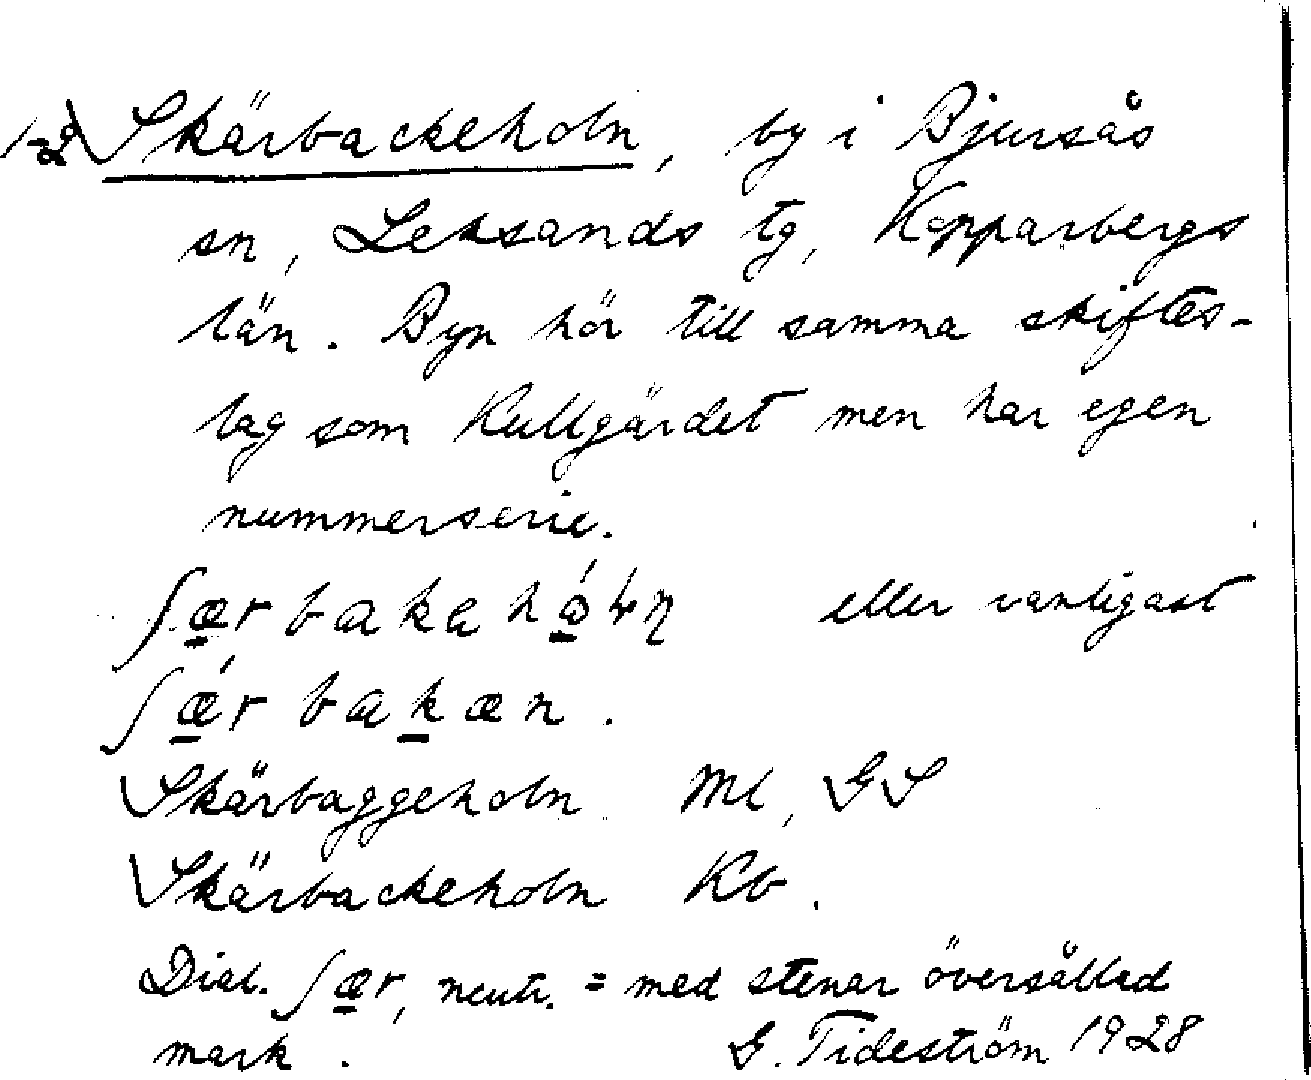 Skärbackeholn, by i Bjursås
sn, Leksands tg, Kopparbergs
län. Byn hör till samma skiftes-
lag som Kullgärdet men har egen
nummerserie.
ʃæ̲r bakahá̲ɬn eller vanligast
ʃǽ̲r bak̲æn.
Skärbaggeholn Ml, GS
Skärbackeholn Kb.
Dial. ʃæ̲r, neutr. = med stenar översållad
mark. G. Tideström 1928